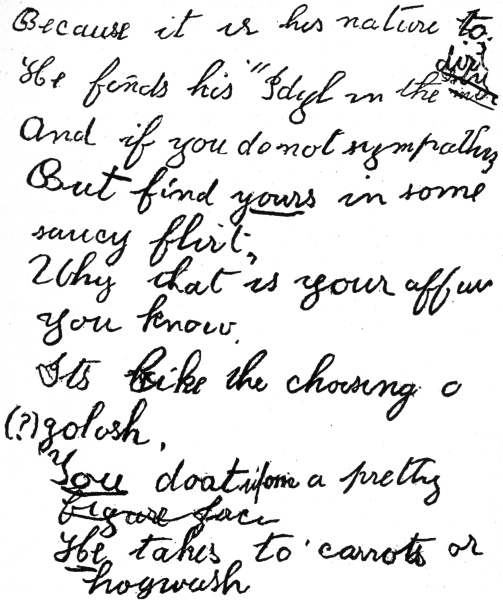 Because it is his nature to?
dirt
He finds his "Idyl in the
And if you do not sympathy
But find yours in some
saucy flirt,
Why that is your affair
you know.
Its like the choosing o
(?) golosh,
You doat upon a pretty
figure face
He takes to carrots or
hogwash